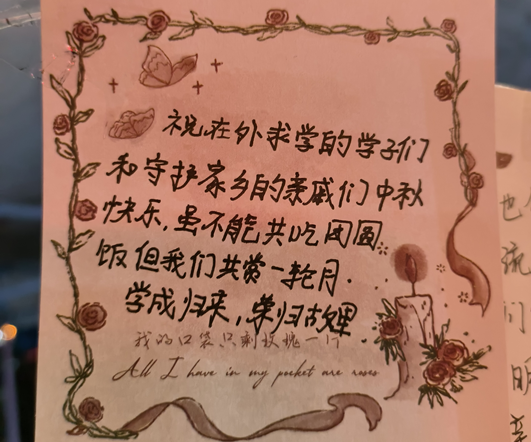 祝在外求学的学子们
和守护家乡的亲戚们中秋
快乐,虽不能共吃团圆
饭但我们共赏一轮月.
学成归来,荣归故里
我的口袋只剩玫瑰一
All I have in my pocket are roses
也
流
们
明